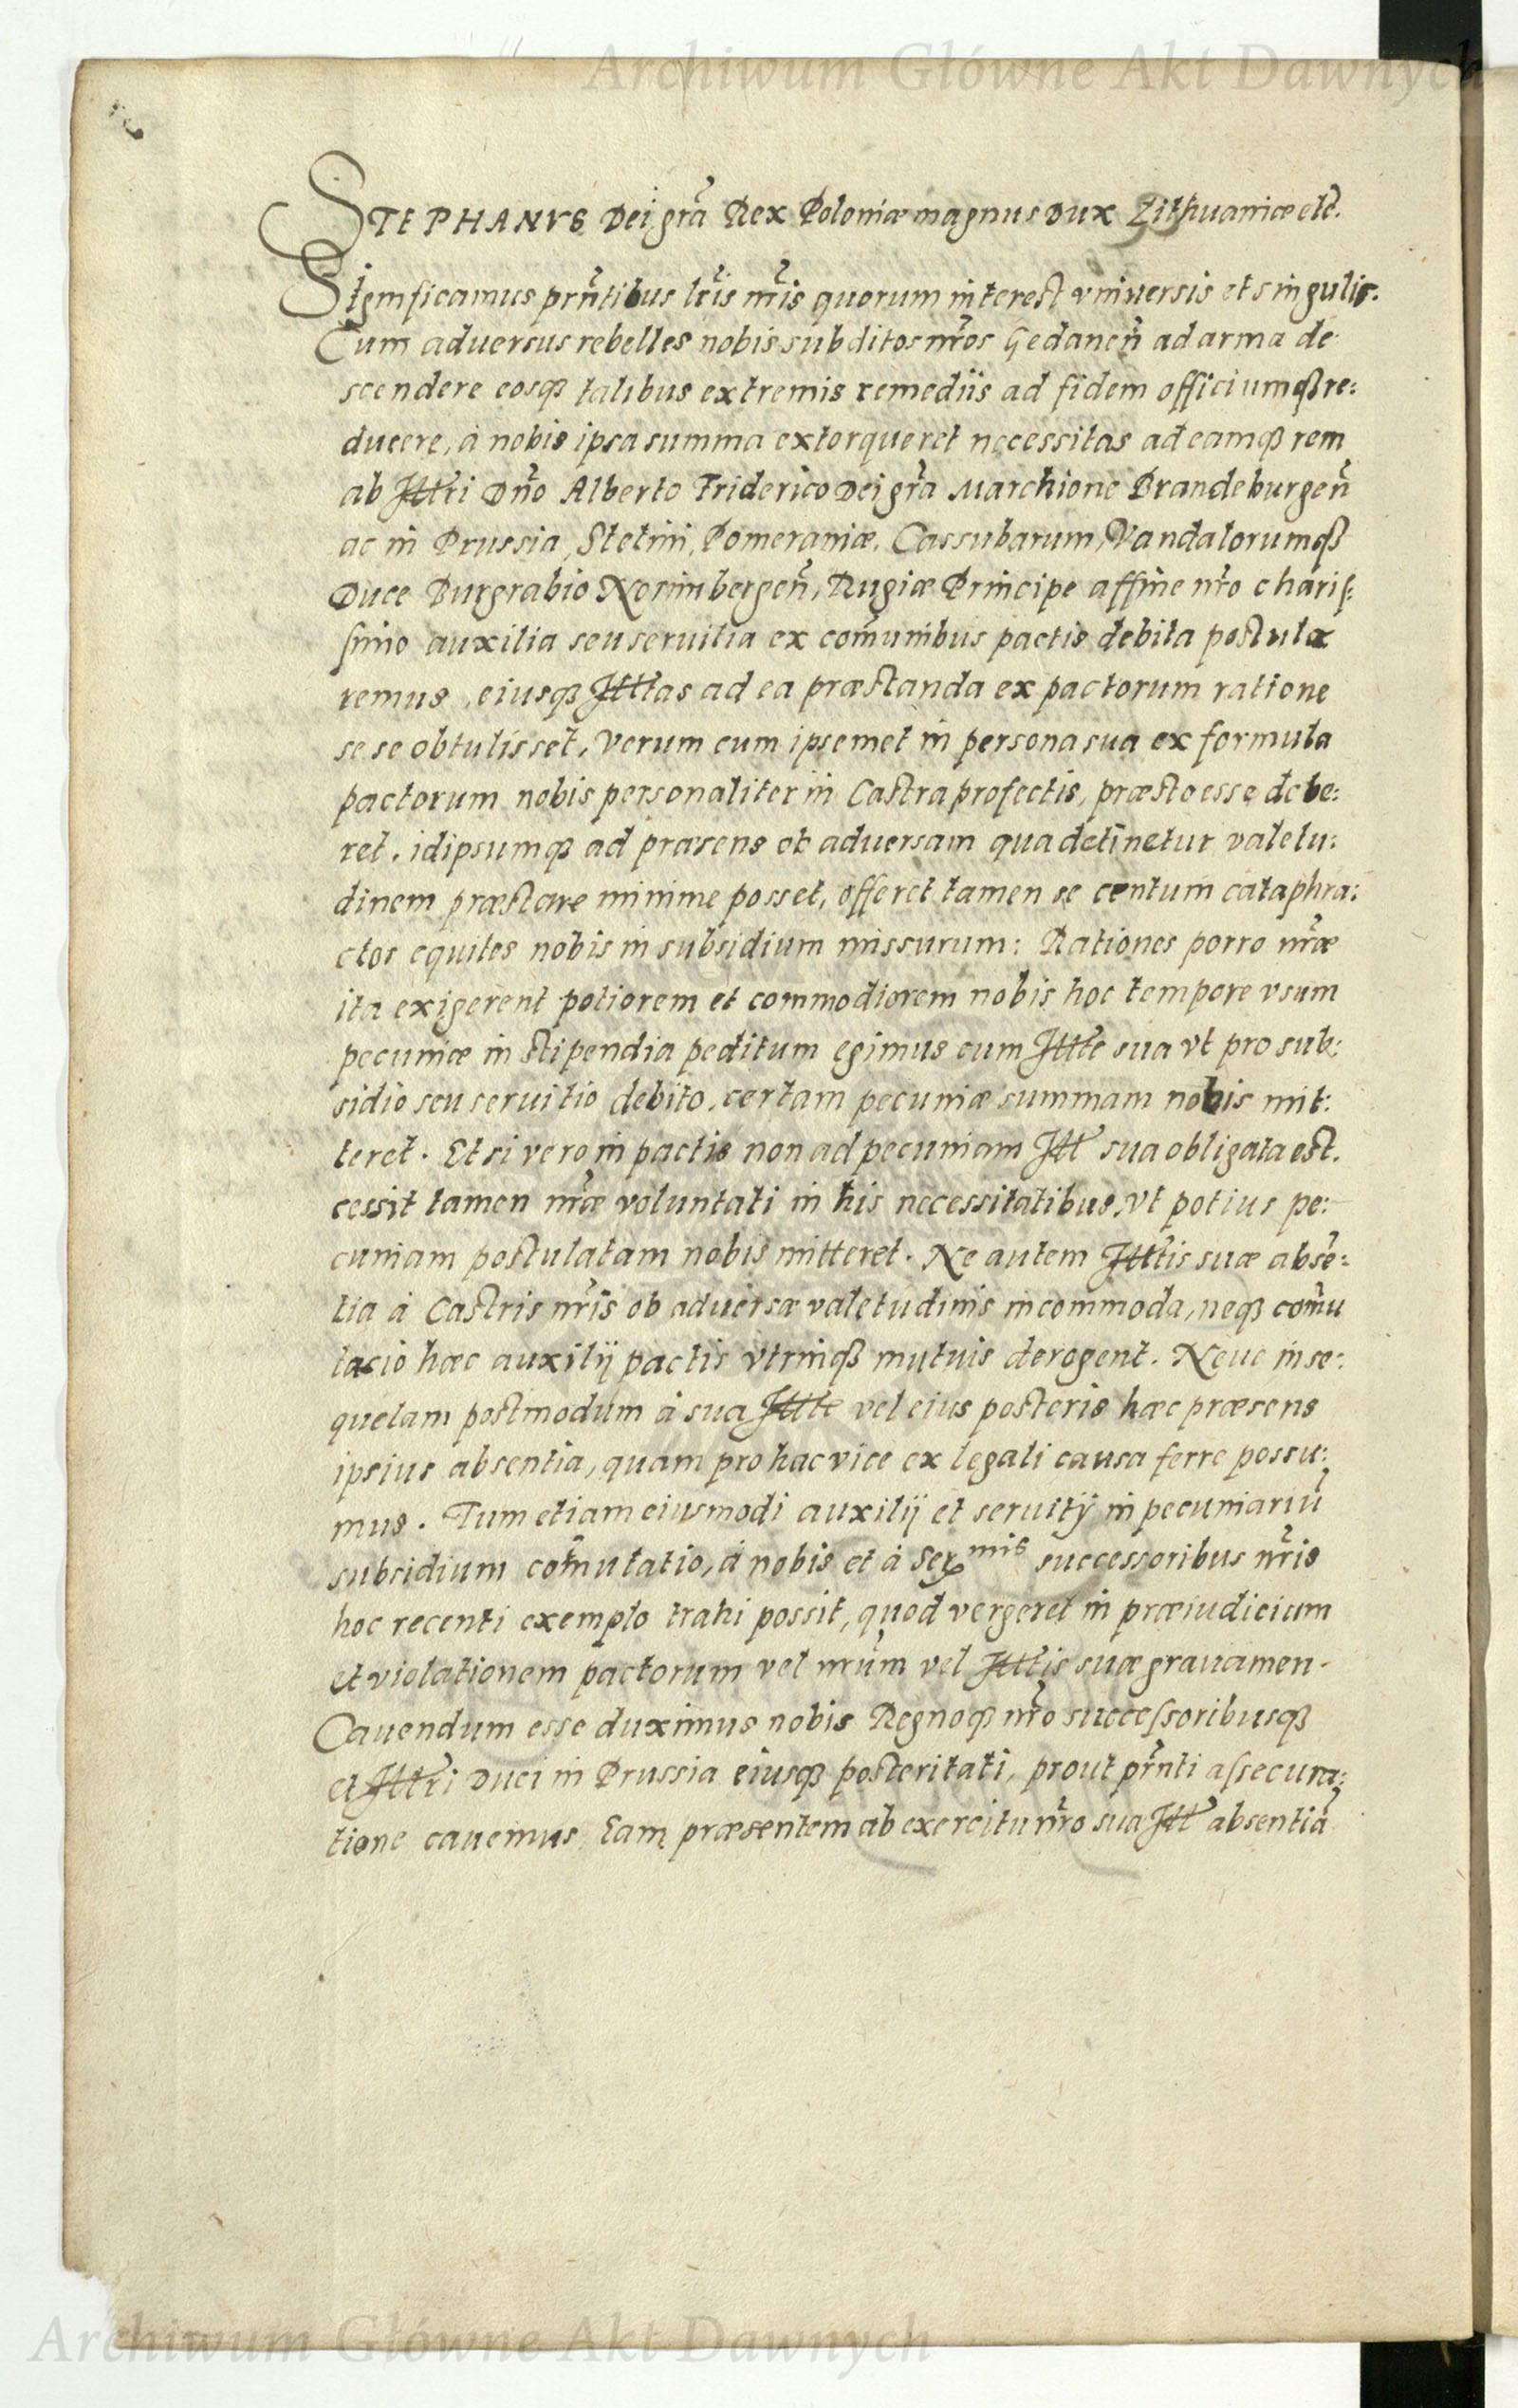 Archiwum Główne Akt Dawnych
STEPHANVS Dei gr̃a Rex Poloniæ magnus Dux Lithuaniæ etc̃.
Significamus prñtibus lr̃is nr̃is quorum interest vniuersis et singulis.
Cum aduersus rebelles nobis subditos nr̃os Gedaneñ ad arma de-
scendere eosqꝫ talibus extremis remediis ad fidem officiumqꝫ re:
ducere, à nobis ipsa summa extorqueret necessitas ad eamqꝫ rem
ab Illr̃i Dño Alberto Friderico Dei gr̃a Marchione Brandeburgeñ
ac in Prussia, Stetini, Pomeraniæ, Cassubarum, Vandalorumqꝫ
Duce Burgrabio Norimbergeñ, Rugiæ Principe affine nr̃o chariſ:
ſimo auxilia seu seruitia ex com̃unibus pactis debita postula
remus, eiusqꝫ Illtas ad ea præstanda ex pactorum ratione
se se obtulisset, Verum cum ipsemet in persona sua ex formula
pactorum nobis personaliter in Castra profectis, præsto esse debe:
ret, idipsumqꝫ ad præsens ob aduersam qua detinetur valetu:
dinem præstare minime posset, offeret tamen se centum cataphra:
ctos equites nobis in subsidium missurum: Rationes porro nr̃æ
ita exigerent potiorem et commodiorem nobis hoc tempore vsum
pecuniæ in stipendia peditum egimus cum Illte sua vt pro sub:
sidio seu seruitio debito, certam pecuniæ summam nobis mit:
teret. Etsi vero in pactis non ad pecuniam Illt sua obligata est.
cessit tamen nr̃æ voluntati in his necessitatibus, vt potius pe:
cuniam postulatam nobis mitteret. Ne autem Illtis suæ absẽ:
tia à Castris nr̃is ob aduersæ valetudinis incommoda, neqꝫ com̃u
tacio hæc auxilij pactis vtrinqꝫ mutuis derogent. Neue in se:
quelam postmodum à sua Illte vel eius posteris hæc præsens
ipsius absentia, quam pro hac vice ex legali causa ferre possu:
mus. Tum etiam eiusmodi auxilij et seruitij in pecuniariũ
subsidium com̃utatio, à nobis et à Serᵐⁱˢ successoribus nr̃is
hoc recenti exemplo trahi possit, quod vergeret in præiudicium
et violationem pactorum vel nr̃um vel Illtis suæ grauamen.
Cauendum esse duximus nobis Regnoqꝫ nr̃o succeſsoribusqꝫ
et Illr̃i Duci in Prussia eiusqꝫ posteritati, prout prñti aſsecura:
tione cauemus, Eam præsentem ab exercitu nr̃o sua Illt absentiã
Archiwum Główne Akt Dawnych